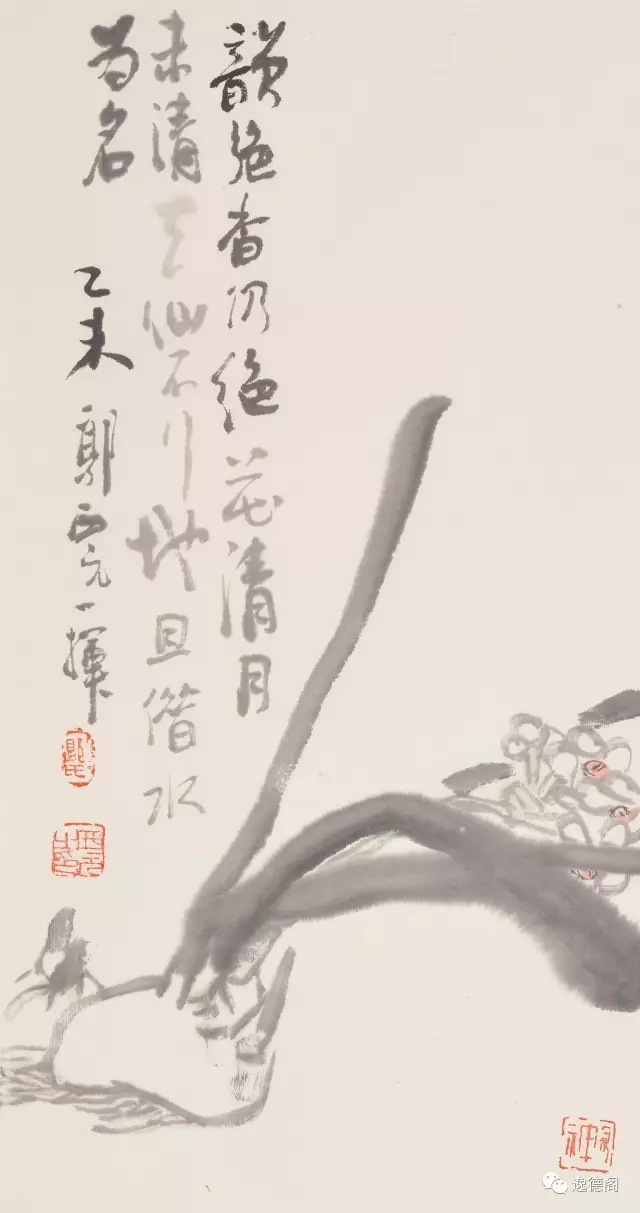 韻絕香仍絕花清月
未清天仙不行地且借水
為名 乙未 郭西元一揮
逸德阁